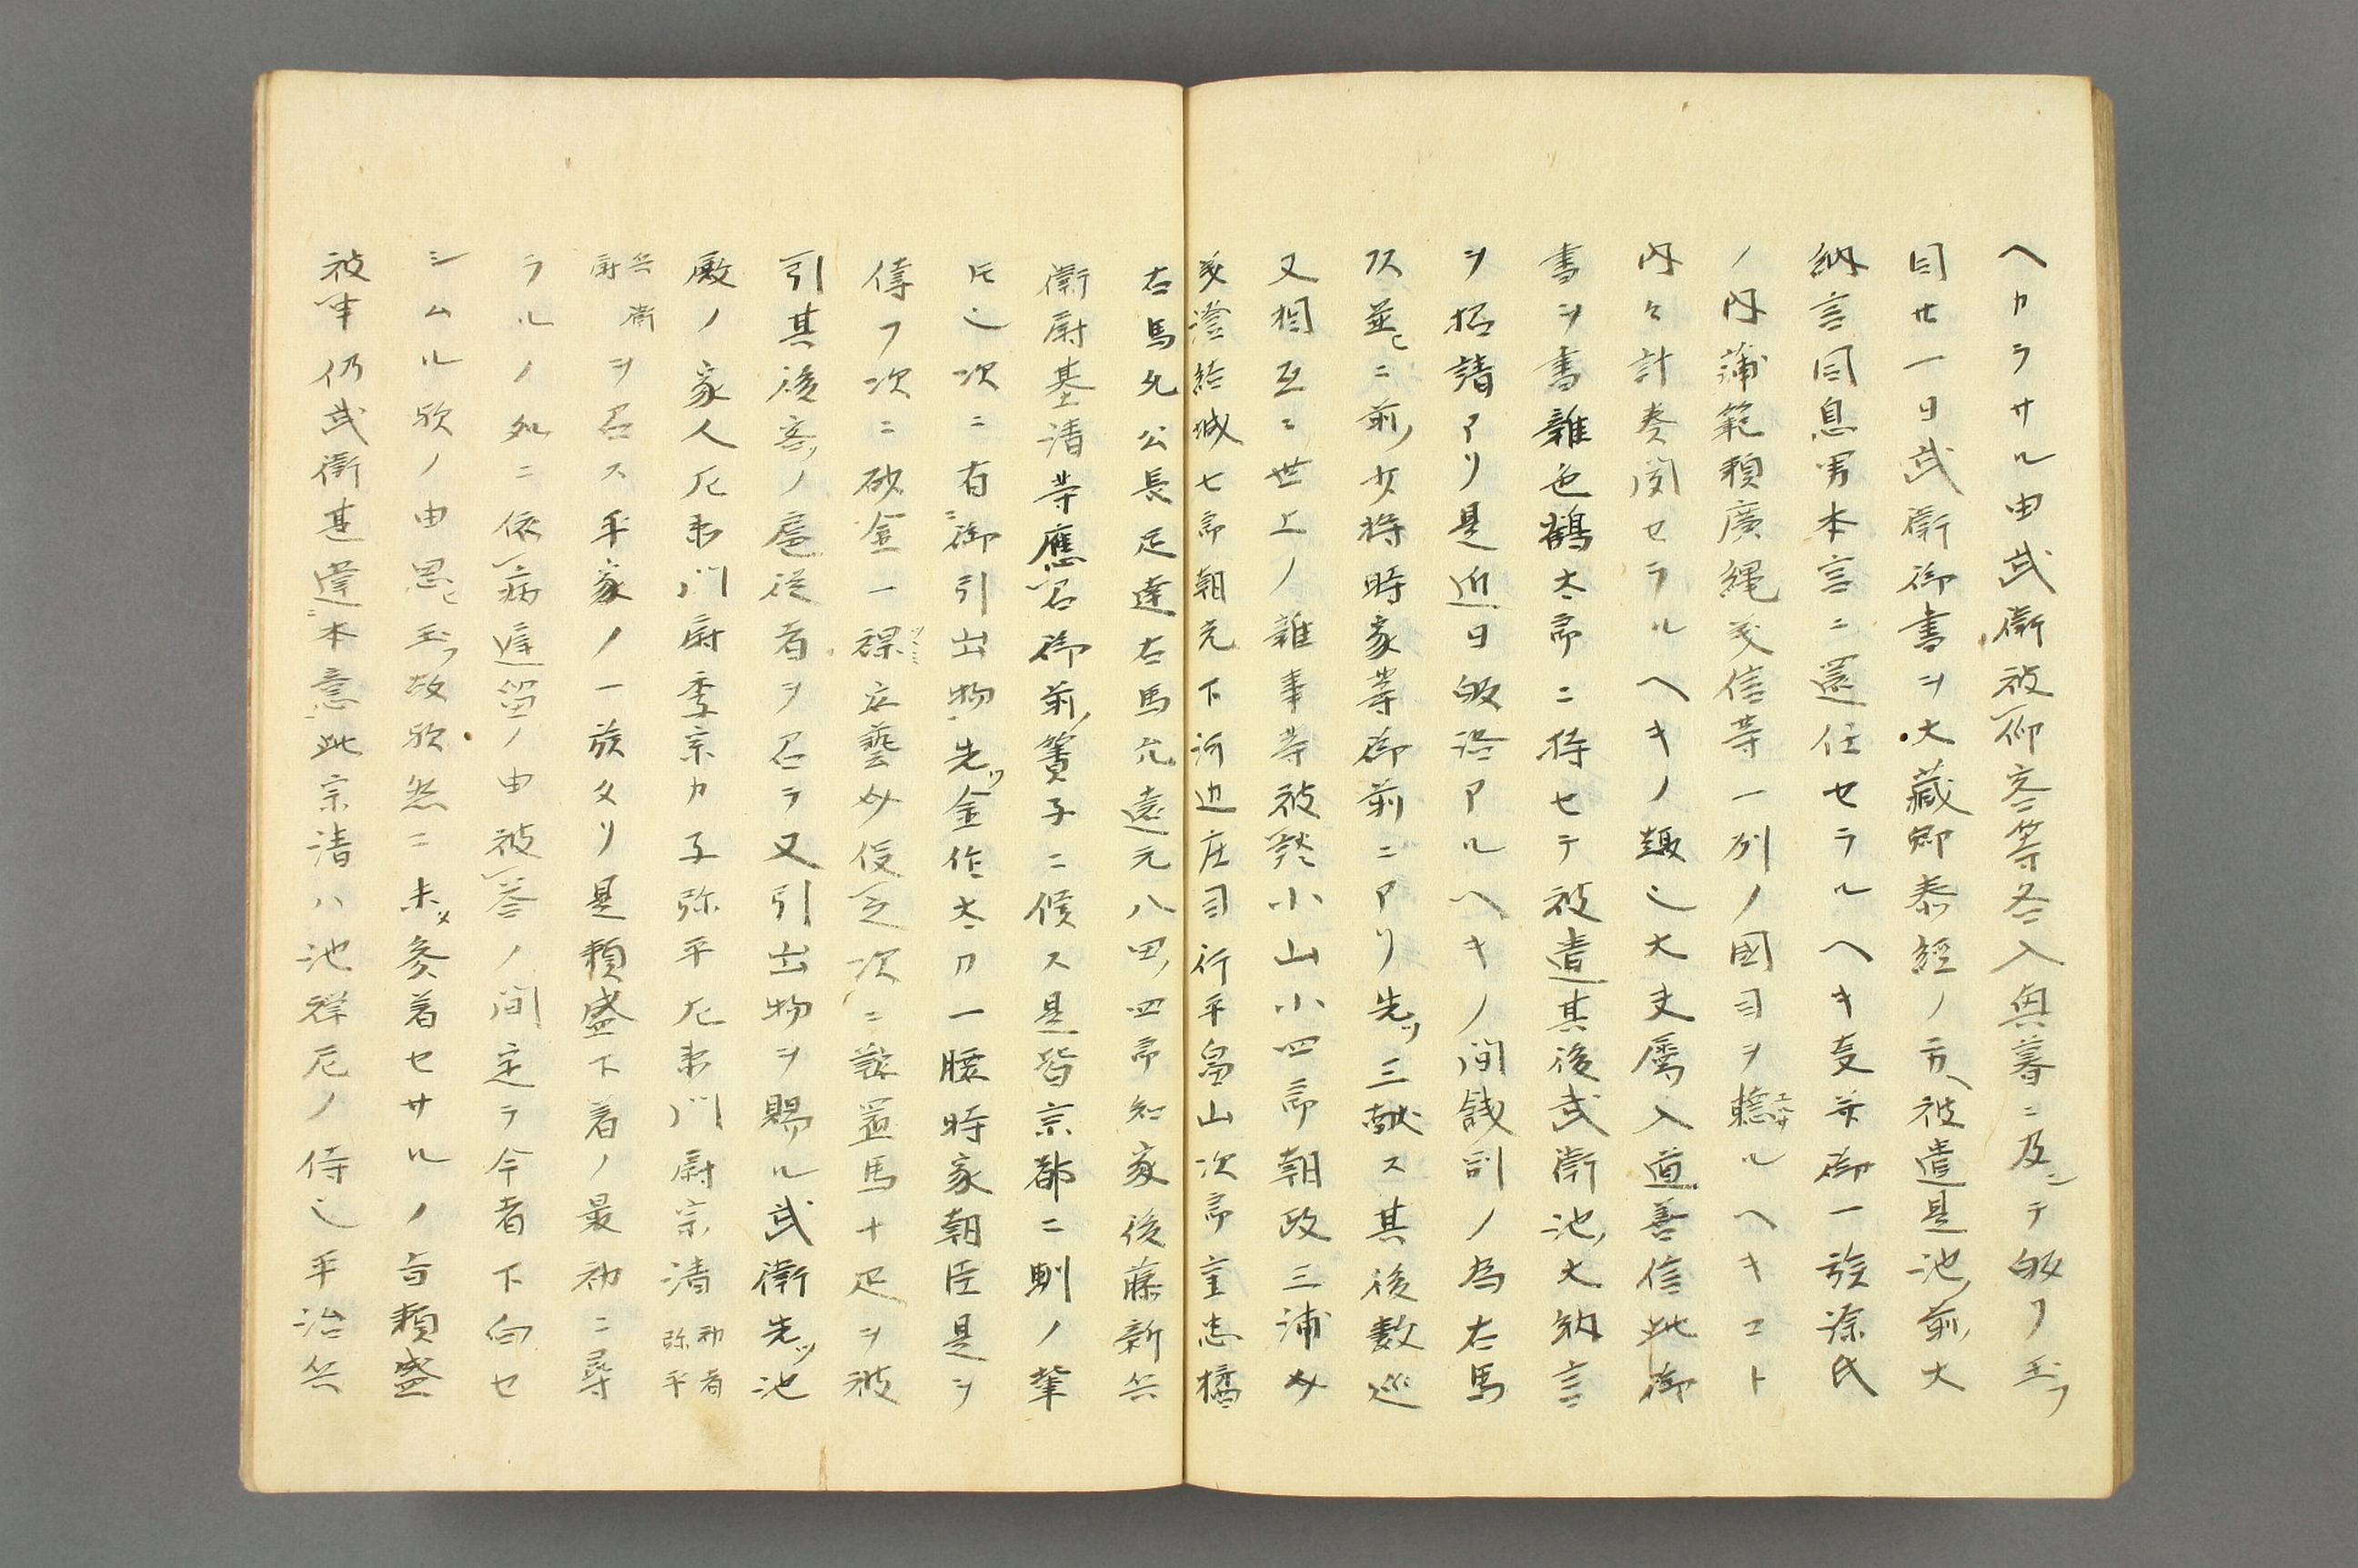 ヘカラサル由武衛被仰客等各入興暮ニ及シテ皈リ玉フ
同廿一日武衛御書ヲ大藏卿泰經ノ方ヘ被遣是池ノ前ノ大
納言同息男本官ニ還任セラルヘキ支并御一族源氏
ノ内蒲範頼廣綱義信等一列ノ國司ヲ聴ルヘキコト
内々計奏聞セラルヘキノ趣也大夫属入道善信此御
書ヲ書雜色鶴太郎ニ持セテ被遣其後武衛池ノ大納言
ヲ招請アリ是近日皈洛アルヘキノ間餞別ノ為右馬
頭並ヒニ前ノ少将時家等御前ニアリ先ツ三献ス其後数巡
又相互ニ世上ノ雜事等被談小山小四郎朝政三浦ノ介
義澄結城七郎朝光下河辺庄司行平畠山次郎重忠橘
右馬允公長足達右馬允遠元八田ノ四郎知家後藤新兵
衛尉基清等應召御前ノ簀子ニ候ス是皆京都ニ馴ノ輩
氏也次ニ有御引出物先ツ金作太刀一腰時家朝臣是ヲ
傳フ次ニ砂金一裸安藝介役之次ニ鞍置馬十疋ヲ被
引其後客ノ扈従者ヲ召ラ又引出物ヲ賜ル武衛先ツ池
殿ノ家人左衛門尉季宗カ子弥平左衛門尉宗清 初者弥平
兵衛尉ヲ召ス平家ノ一族タリ是頼盛下着ノ最初ニ尋
ラルノ処ニ依病遅留ノ由被答ノ間定テ今者下向セ
シムル欤ノ由思ヒ玉フ故欤然ニ未タ參着セサルノ旨頼盛
被申仍武衛甚違本意此宗清ハ池禅尼ノ侍也平治兵